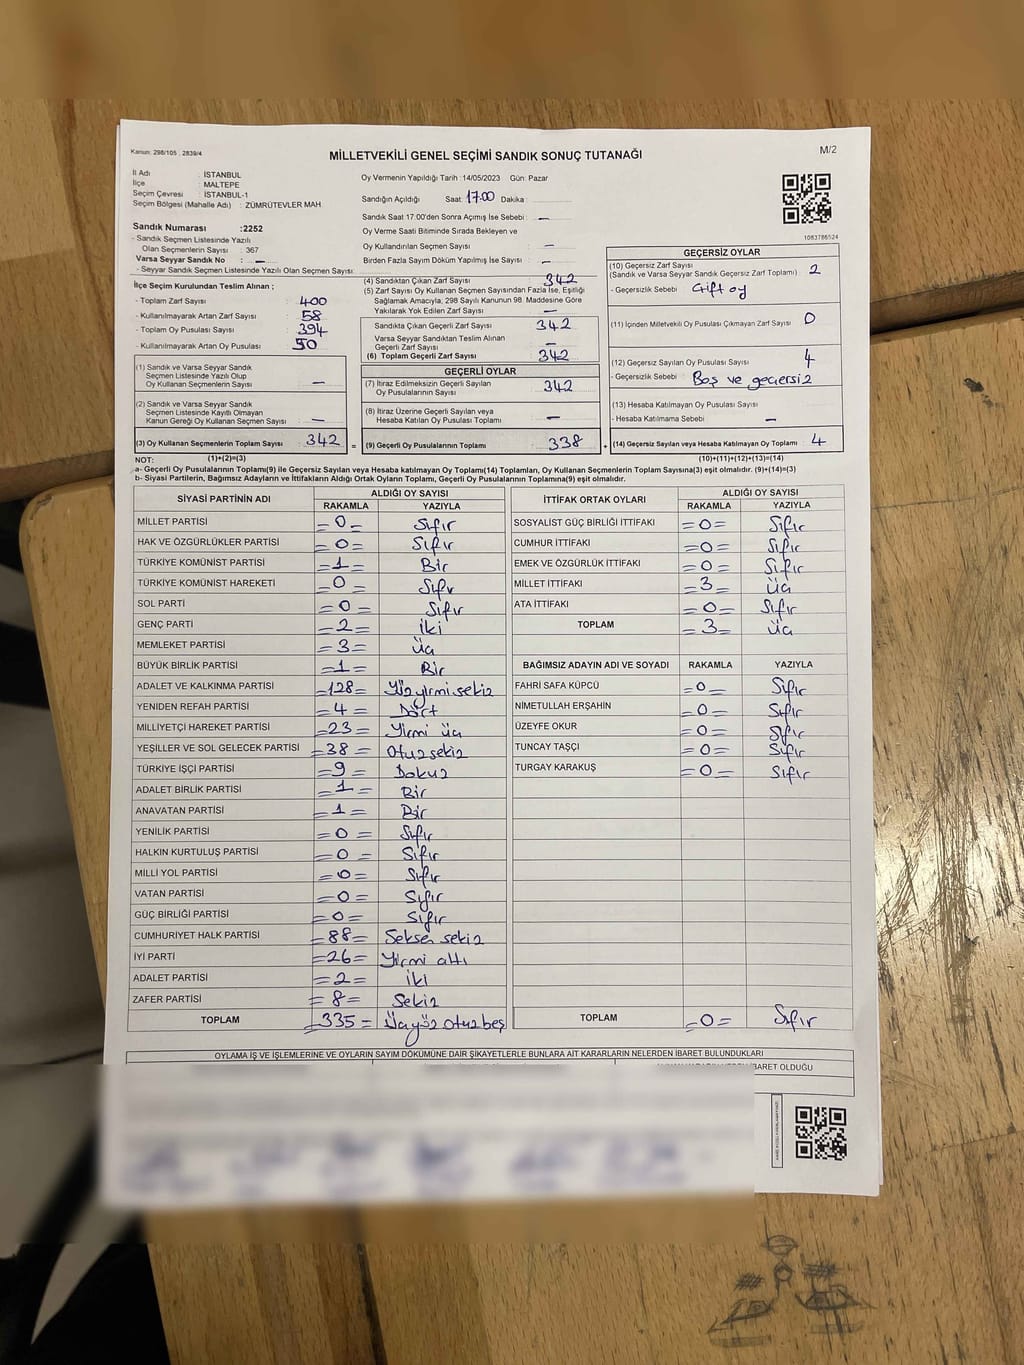 Kanun: 298/105 , 2839/4
MİLLETVEKİLİ GENEL SEÇİMİ SANDIK SONUÇ TUTANAĞI
M/2
İl Adı : İSTANBUL
İlçe : MALTEPE
Seçim Çevresi : İSTANBUL-1
Seçim Bölgesi (Mahalle Adı) : ZÜMRÜTEVLER MAH
Sandık Numarası :2252
- Sandık Seçmen Listesinde Yazılı
Olan Seçmenlerin Sayısı : 367
Varsa Seyyar Sandık No : —
- Seyyar Sandık Seçmen Listesinde Yazılı Olan Seçmen Sayısı
İlçe Seçim Kurulundan Teslim Alınan ;
- Toplam Zarf Sayısı : 400
- Kullanılmayarak Artan Zarf Sayısı : 58
- Toplam Oy Pusulası Sayısı : 394
- Kullanılmayarak Artan Oy Pusulası : 50
(1) Sandık ve Varsa Seyyar Sandık
Seçmen Listesinde Yazılı Olup
Oy Kullanan Seçmenlerin Sayısı : —
(2) Sandık ve Varsa Seyyar Sandık
Seçmen Listesinde Kayıtlı Olmayan
Kanun Gereği Oy Kullanan Seçmen Sayısı : —
(3) Oy Kullanan Seçmenlerin Toplam Sayısı : 342
Oy Vermenin Yapıldığı Tarih : 14/05/2023 Gün: Pazar
Sandığın Açıldığı Saat: 17.00 Dakika :
Sandık Saat 17:00'den Sonra Açılmış İse Sebebi : —
Oy Verme Saati Bitiminde Sırada Bekleyen ve
Oy Kullandırılan Seçmen Sayısı : —
Birden Fazla Sayım Döküm Yapılmış İse Sayısı : —
(4) Sandıktan Çıkan Zarf Sayısı : 342
(5) Zarf Sayısı Oy Kullanan Seçmen Sayısından Fazla İse, Eşitliği
Sağlamak Amacıyla, 298 Sayılı Kanunun 98. Maddesine Göre
Yakılarak Yok Edilen Zarf Sayısı : —
Sandıkta Çıkan Geçerli Zarf Sayısı : 342
Varsa Seyyar Sandıktan Teslim Alınan
Geçerli Zarf Sayısı : —
(6) Toplam Geçerli Zarf Sayısı : 342
GEÇERLİ OYLAR
(7) İtiraz Edilmeksizin Geçerli Sayılan
Oy Pusulalarının Sayısı : 342
(8) İtiraz Üzerine Geçerli Sayılan veya
Hesaba Katılan Oy Pusulası Toplamı : —
= (9) Geçerli Oy Pusulalarının Toplamı : 338
1083786524
GEÇERSİZ OYLAR
(10) Geçersiz Zarf Sayısı
(Sandık ve Varsa Seyyar Sandık Geçersiz Zarf Toplamı) : 2
- Geçersizlik Sebebi : Çift oy
(11) İçinden Milletvekili Oy Pusulası Çıkmayan Zarf Sayısı : 0
(12) Geçersiz Sayılan Oy Pusulası Sayısı : 4
- Geçersizlik Sebebi : Boş ve geçersiz
(13) Hesaba Katılmayan Oy Pusulası Sayısı
- Hesaba Katılmama Sebebi : —
+ (14) Geçersiz Sayılan veya Hesaba Katılmayan Oy Toplamı : 4
NOT: (1)+(2)=(3) (10)+(11)+(12)+(13)=(14)
a- Geçerli Oy Pusulalarının Toplamı(9) ile Geçersiz Sayılan veya Hesaba katılmayan Oy Toplamı(14) Toplamları, Oy Kullanan Seçmenlerin Toplam Sayısına(3) eşit olmalıdır. (9)+(14)=(3)
b- Siyasi Partilerin, Bağımsız Adayların ve İttifakların Aldığı Ortak Oyların Toplamı, Geçerli Oy Pusulalarının Toplamına(9) eşit olmalıdır.
SİYASİ PARTİNİN ADI ALDIĞI OY SAYISI
RAKAMLA YAZIYLA
MİLLET PARTİSİ =0= Sıfır
HAK VE ÖZGÜRLÜKLER PARTİSİ =0= Sıfır
TÜRKİYE KOMÜNİST PARTİSİ =1= Bir
TÜRKİYE KOMÜNİST HAREKETİ =0= Sıfır
SOL PARTİ =0= Sıfır
GENÇ PARTİ =2= iki
MEMLEKET PARTİSİ =3= Üç
BÜYÜK BİRLİK PARTİSİ =1= Bir
ADALET VE KALKINMA PARTİSİ =128= Yüzyirmi sekiz
YENİDEN REFAH PARTİSİ =4= Dört
MİLLİYETÇİ HAREKET PARTİSİ =23= Yirmi üç
YEŞİLLER VE SOL GELECEK PARTİSİ =38= Otuzsekiz
TÜRKİYE İŞÇİ PARTİSİ =9= Dokuz
ADALET BİRLİK PARTİSİ =1= Bir
ANAVATAN PARTİSİ =1= Bir
YENİLİK PARTİSİ =0= Sıfır
HALKIN KURTULUŞ PARTİSİ =0= Sıfır
MİLLİ YOL PARTİSİ =0= Sıfır
VATAN PARTİSİ =0= Sıfır
GÜÇ BİRLİĞİ PARTİSİ =0= Sıfır
CUMHURİYET HALK PARTİSİ =88= Seksen sekiz
İYİ PARTİ =26= Yirmi altı
ADALET PARTİSİ =2= iki
ZAFER PARTİSİ =8= Sekiz
TOPLAM =335= Üçyüz otuz beş
İTTİFAK ORTAK OYLARI ALDIĞI OY SAYISI
RAKAMLA YAZIYLA
SOSYALİST GÜÇ BİRLİĞİ İTTİFAKI =0= Sıfır
CUMHUR İTTİFAKI =0= Sıfır
EMEK VE ÖZGÜRLÜK İTTİFAKI =0= Sıfır
MİLLET İTTİFAKI =3= Üç
ATA İTTİFAKI =0= Sıfır
TOPLAM =3= Üç
BAĞIMSIZ ADAYIN ADI VE SOYADI RAKAMLA YAZIYLA
FAHRİ SAFA KÜPCÜ =0= Sıfır
NİMETULLAH ERŞAHİN =0= Sıfır
ÜZEYFE OKUR =0= Sıfır
TUNCAY TAŞÇI =0= Sıfır
TURGAY KARAKUŞ =0= Sıfır
TOPLAM =0= Sıfır
OYLAMA İŞ VE İŞLEMLERİNE VE OYLARIN SAYIM DÖKÜMÜNE DAİR ŞİKAYETLERLE BUNLARA AİT KARARLARIN NELERDEN İBARET BULUNDUKLARI
İBARET OLDUĞU